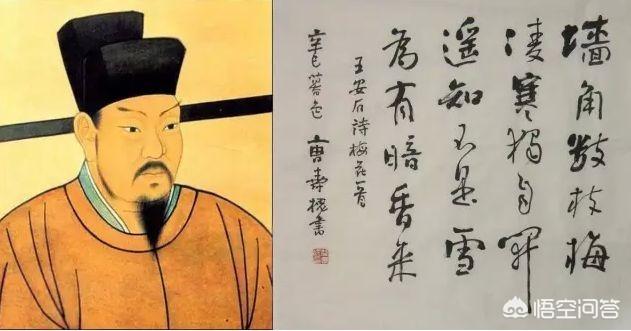 墙角数枝梅
凌寒独自开
遥知不是雪
為有暗香来
王安石诗梅花一首
辛巳
書
悟空问答